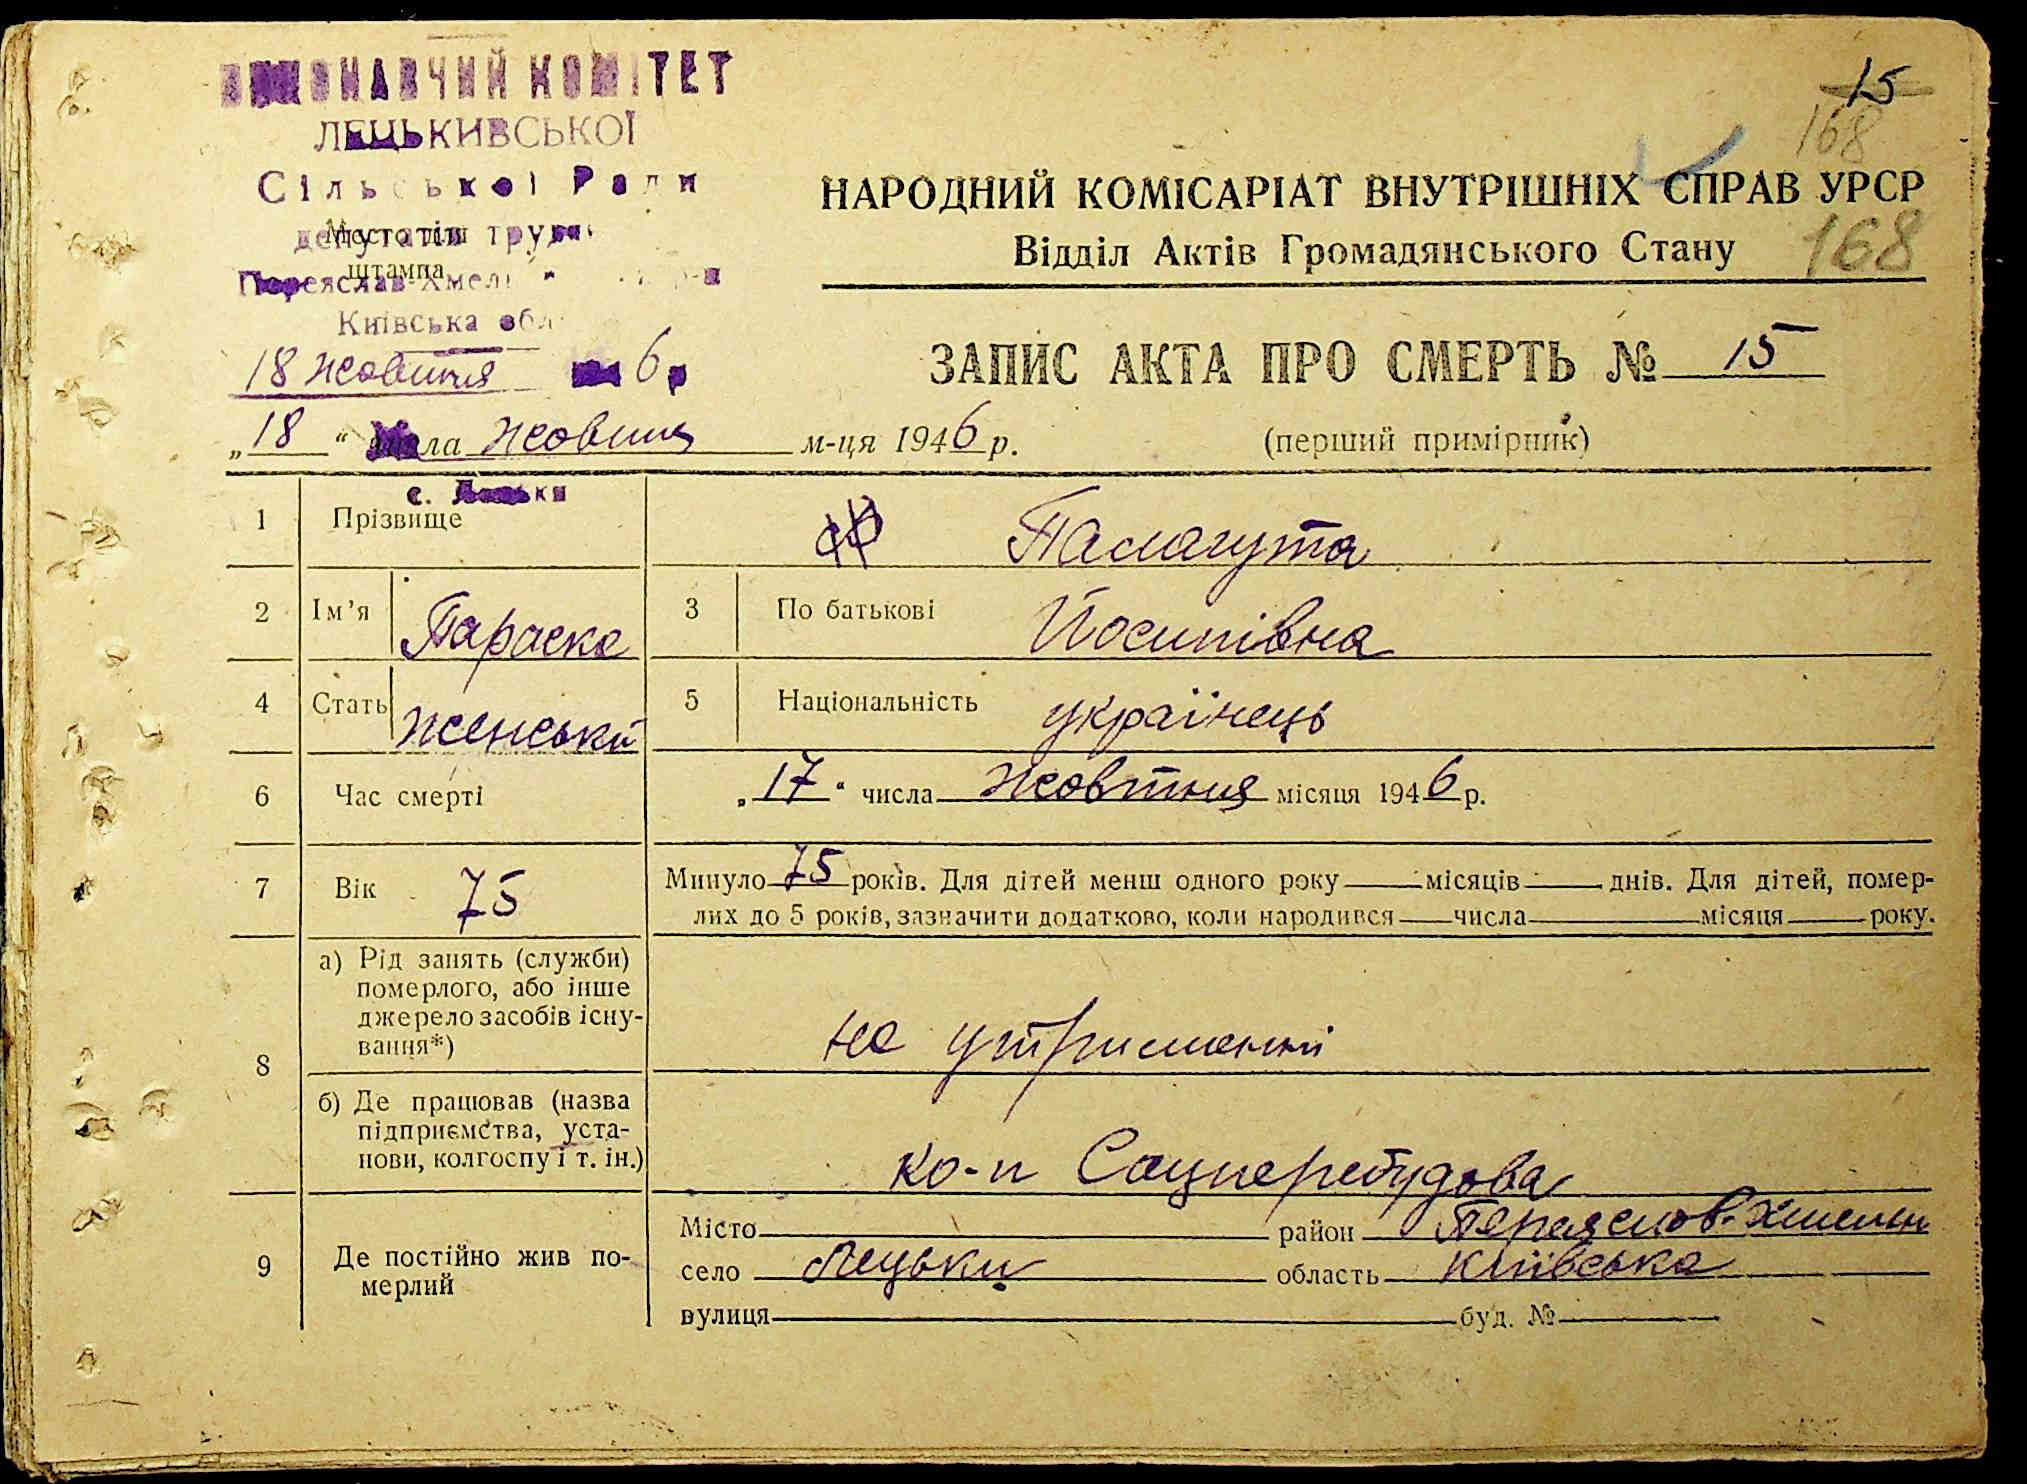 ВИКОНАВЧИЙ КОМІТЕТ
ЛЕЦЬКИВСЬКОЇ
Сільської Ради
депутатів труд
Место для
штампа
Переяслав-Хмел
Київська обл
18 жовтня 6 р
15
168
НАРОДНИЙ КОМІСАРІАТ ВНУТРІШНІХ СПРАВ УРСР
Відділ Актів Громадянського Стану
168
ЗАПИС АКТА ПРО СМЕРТЬ № 15
„18“ числа жовтня м-ця 1946 р.
(перший примірник)
с. Лецьки
1 Прізвище Палагута
2 Ім’я Параска 3 По батькові Йосипівна
4 Стать женський 5 Національність українець
6 Час смерті „17“ числа жовтня місяця 1946 р.
7 Вік 75 Минуло 75 років. Для дітей менш одного року місяців днів. Для дітей, помер-
лих до 5 років, зазначити додатково, коли народився числа місяця року.
8 а) Рід занять (служби)
померлого, або інше
джерело засобів існу-
вання*)
на утриманні
б) Де працював (назва
підприємства, уста-
нови, колгоспу і т. ін.)
ко-п Соцперебудова
9 Де постійно жив по-
мерлий
Місто район Переяслов-Хмельн
село Лецьки область Київська
вулиця буд. №